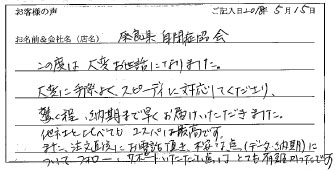 お客様の声 ご記入日2018年5月15日
お名前&会社名(店名) 奈良県自閉症協会
この度は大変お世話になりました。
大変に手際よく、スピーディに対応してくださり、
驚く程、納期まで早くお届けいただきました。
他社と比べても コスパは最高です。
また、注文直後にお電話頂き、不安な点(データ、納期)に
ついてフォロー、サポートいただいた とても有難かったです